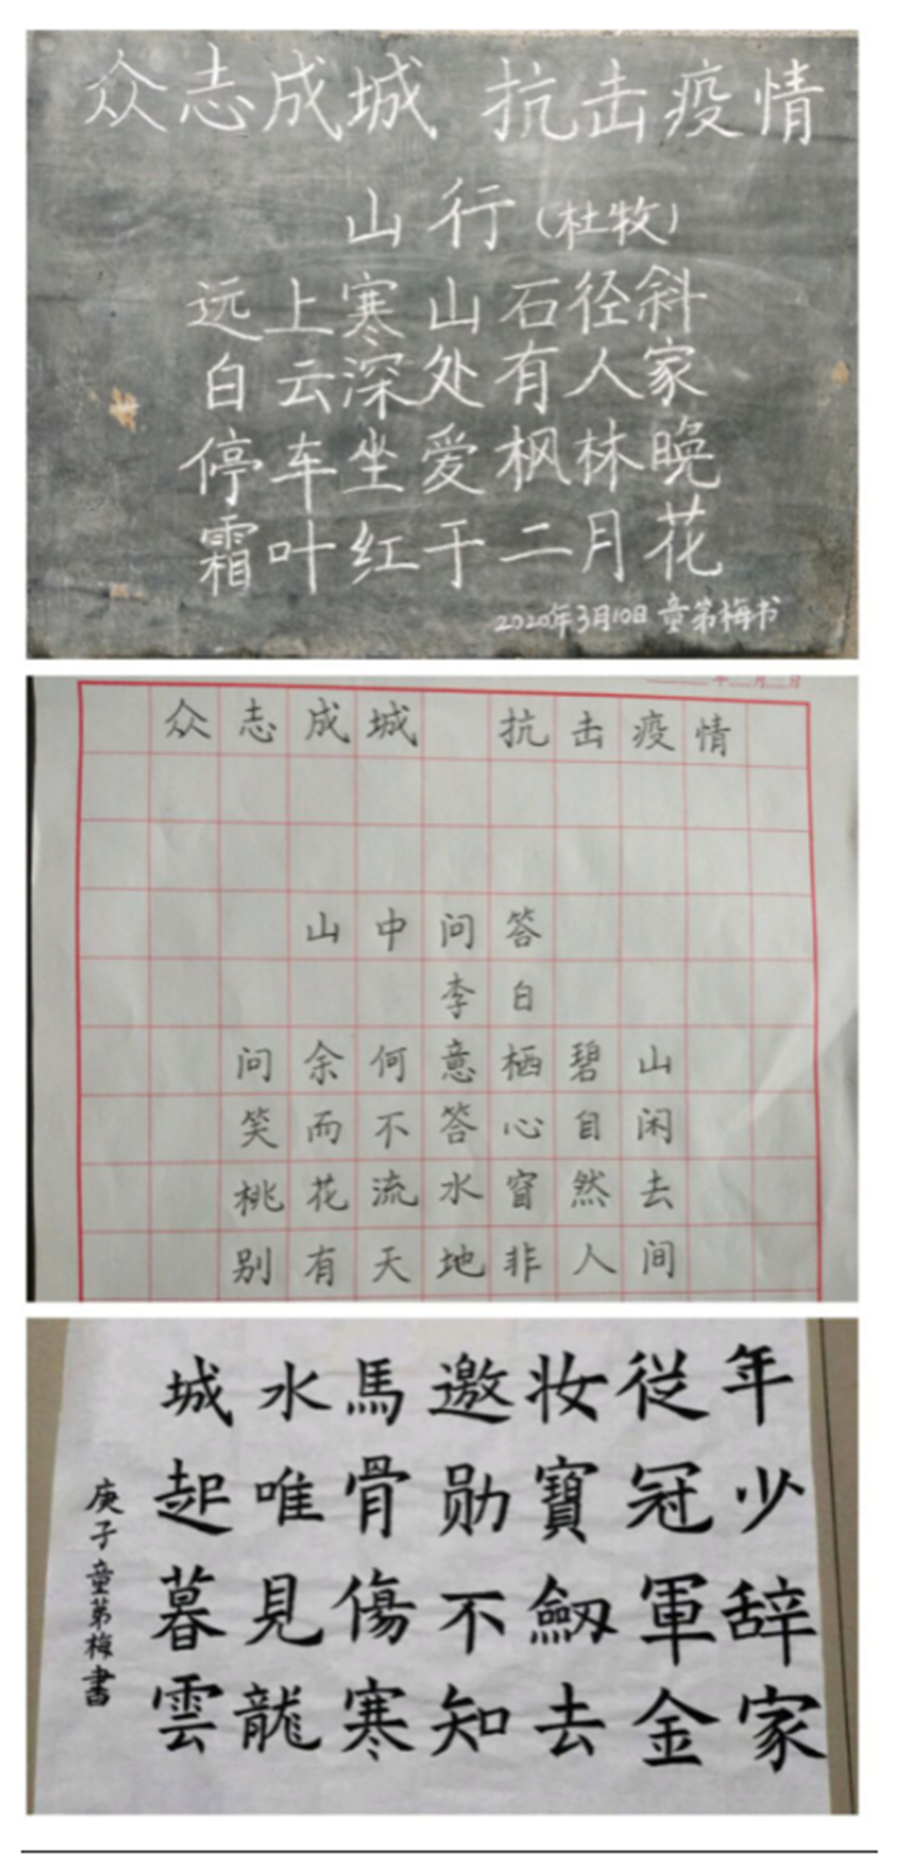 众志成城 抗击疫情
山行(杜牧)
远上寒山石径斜
白云深处有人家
停车坐爱枫林晚
霜叶红于二月花
2020年3月10日 童第梅书
年 月 日
众志成城 抗击疫情
山中问答
李白
问余何意栖碧山
笑而不答心自闲
桃花流水窅然去
别有天地非人间
年少辞家
従冠軍金
妆寶劔去
邀勋不知
馬骨傷寒
水唯見龍
城起暮雲
庚子童第梅書